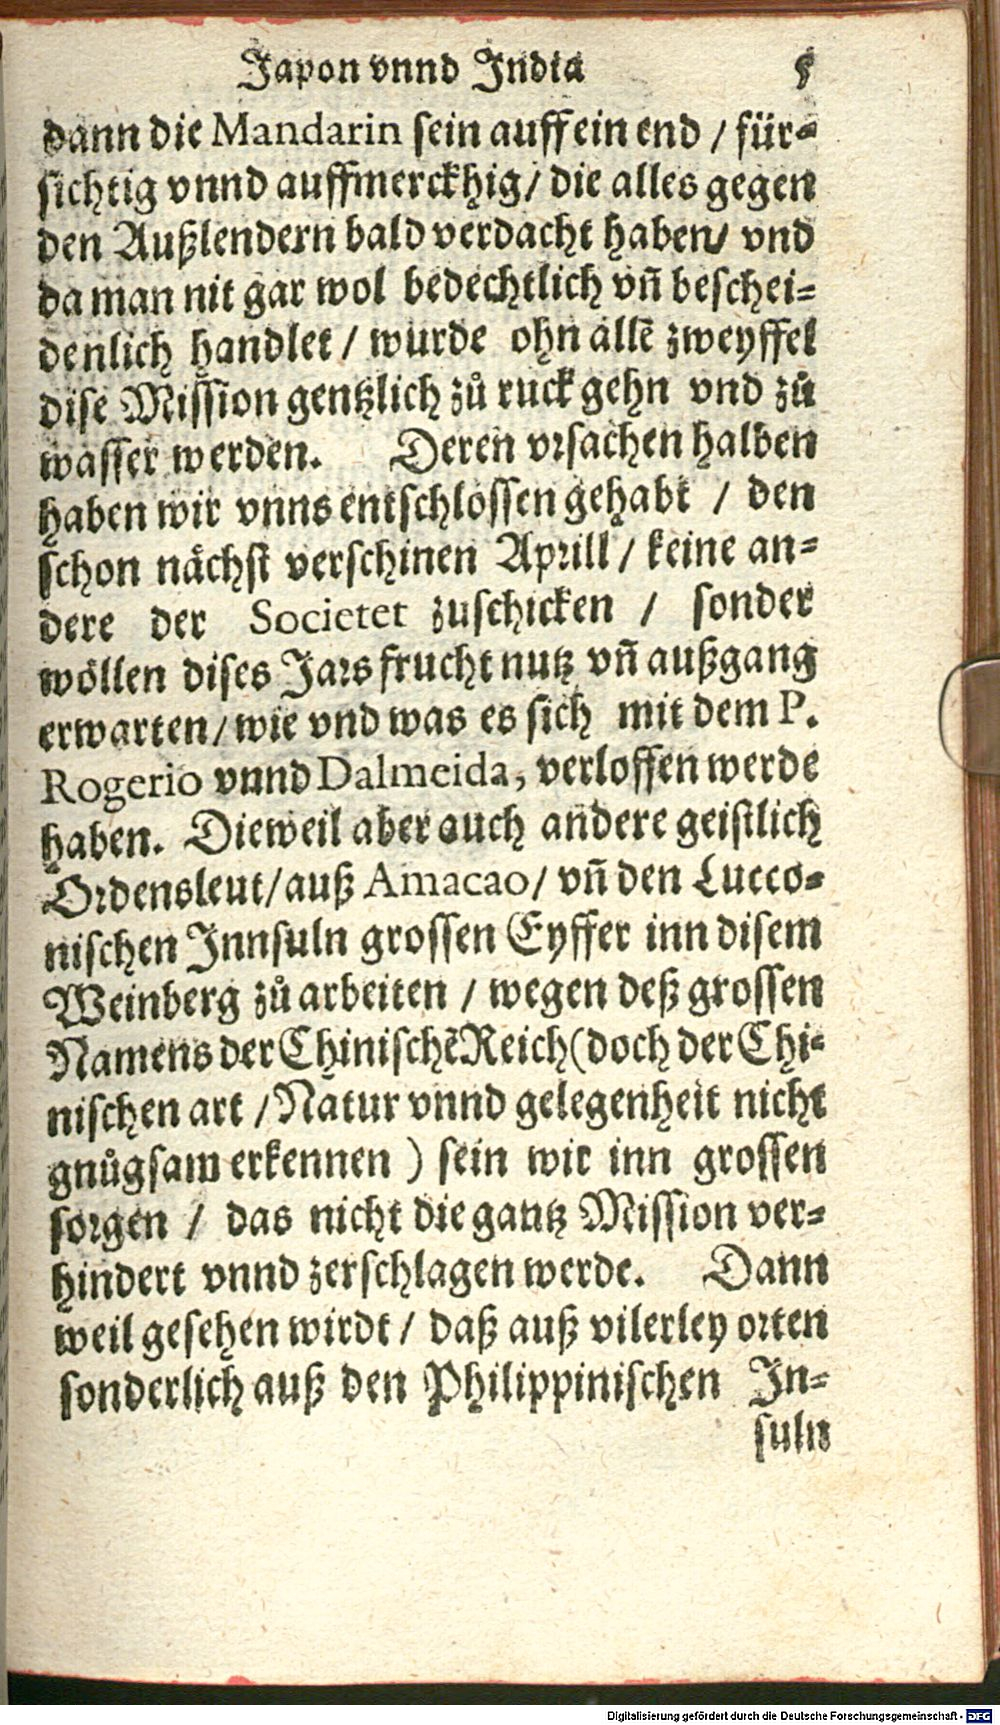 Japon vnnd India 5
dann die Mandarin sein auff ein end / für⸗
sichtig vnnd auffmerckhig / die alles gegen
den Außlendern bald verdacht haben / vnd
da man nit gar wol bedechtlich vñ beschei⸗
denlich handlet / wurde ohn allẽ zweyffel
dise Mission gentzlich zů ruck gehn vnd zů
wasser werden. Deren vrsachen halben
haben wir vnns entschlossen gehabt / den
schon nächst verschinen Aprill / keine an⸗
dere der Societet zuschicken / sonder
wöllen dises Jars frucht nutz vñ außgang
erwarten / wie vnd was es sich mit dem P.
Rogerio vnnd Dalmeida, verloffen werde
haben. Dieweil aber auch andere geistlich
Ordensleut / auß Amacao / vñ den Lucco⸗
nischen Innsuln grossen Eyffer inn disem
Weinberg zů arbeiten / wegen deß grossen
Namens der Chinischẽ Reich (doch der Chi⸗
nischen art / Natur vnnd gelegenheit nicht
gnůgsam erkennen ) sein wir inn grossen
sorgen / das nicht die gantz Mission ver⸗
hindert vnnd zerschlagen werde. Dann
weil gesehen wirdt / daß auß vilerley orten
sonderlich auß den Philippinischen In⸗
suln
Digitalisierung gefördert durch die Deutsche Forschungsgemeinschaft - DFG